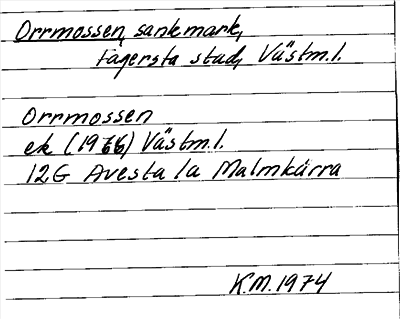 Orrmossen, sankmark,
Fagersta stad, Västm.l.
Orrmossen
ek (1966) Västm.l.
12G Avesta 1a Malmkärra
K.M. 1974